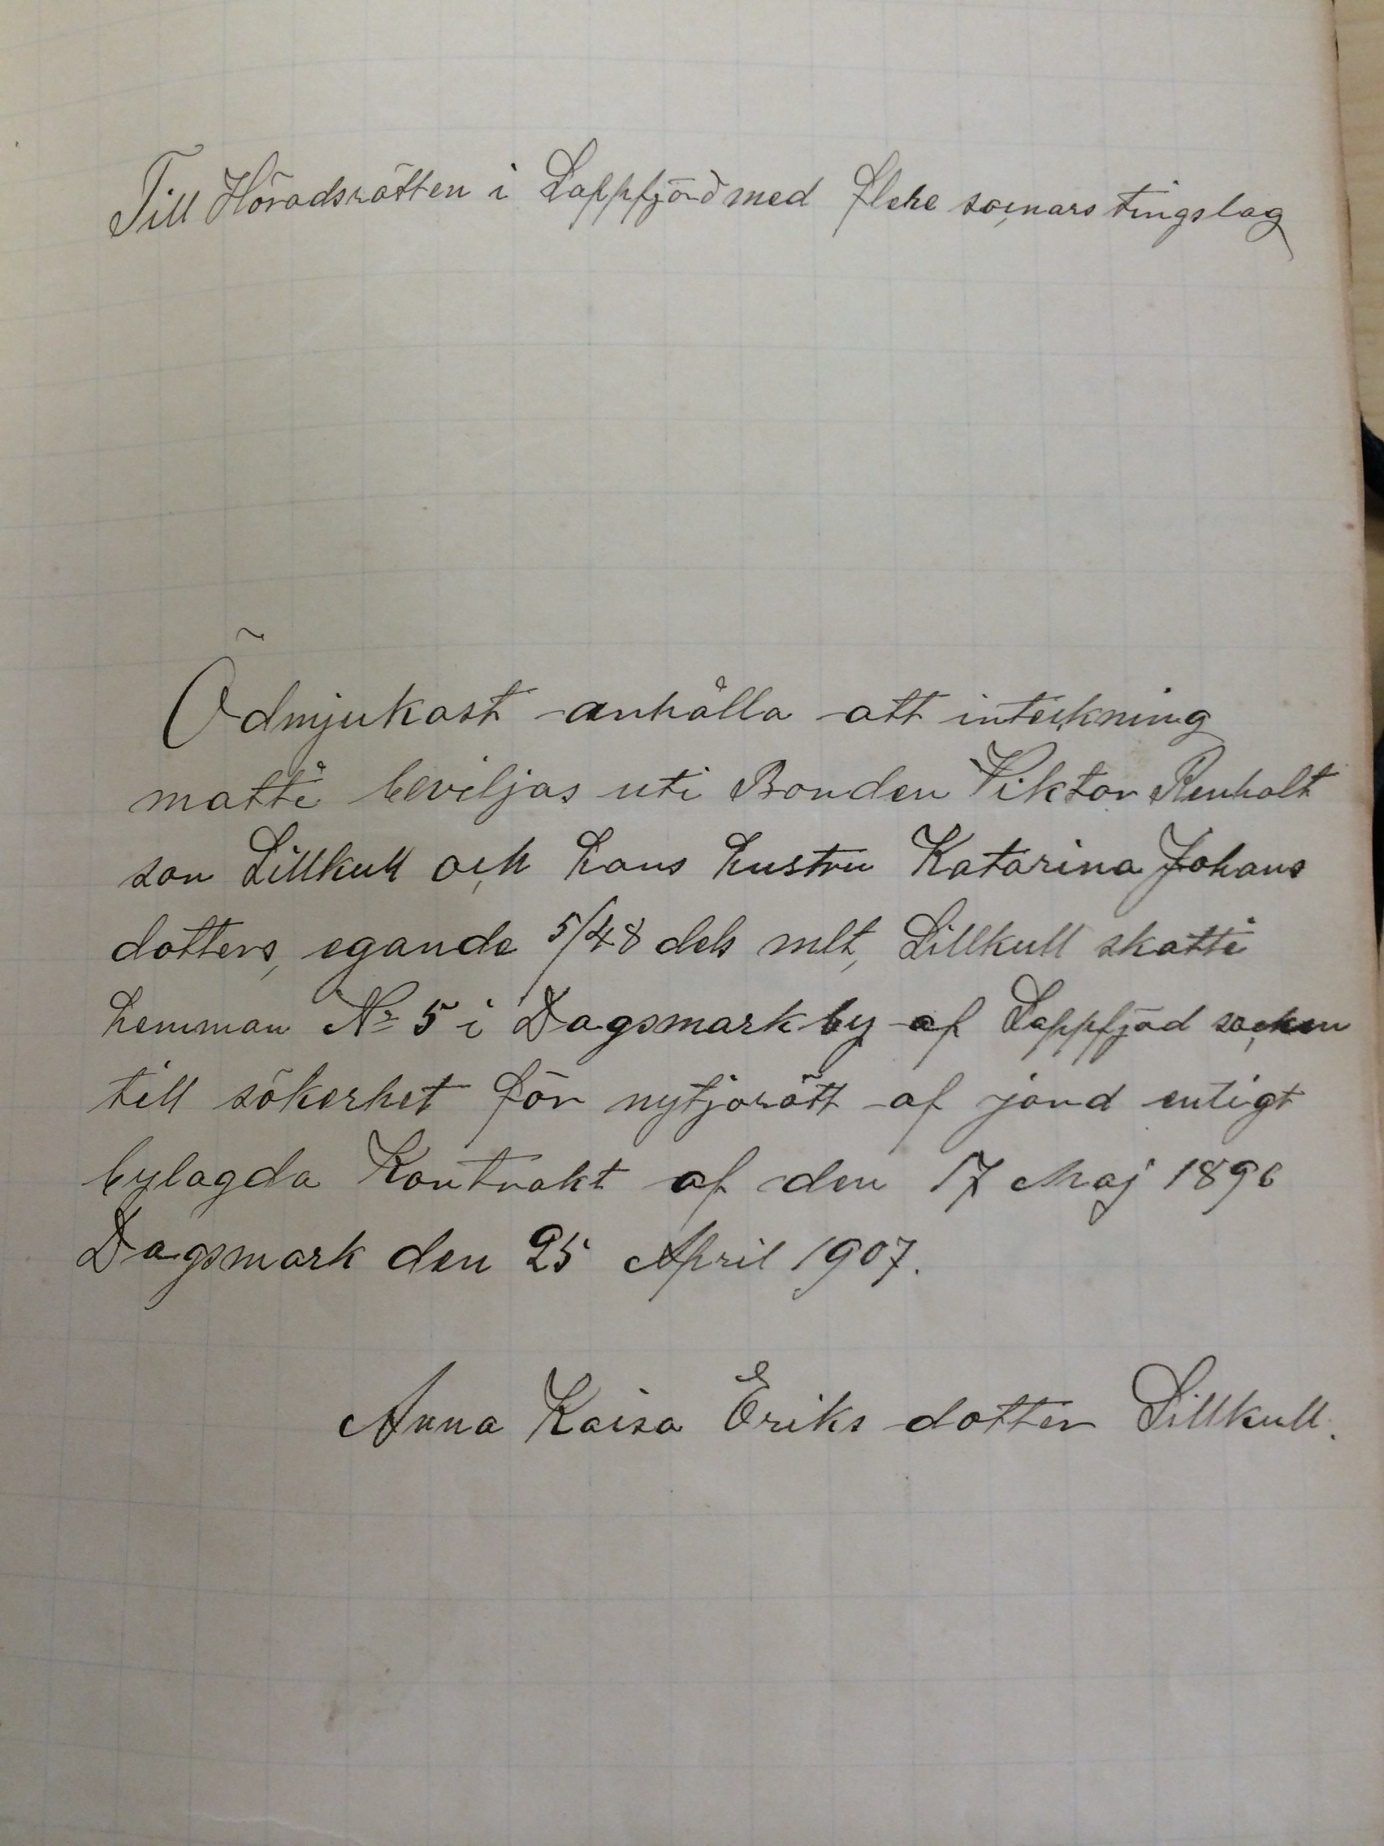 Till Häradsrätten i Lappfjärd med flere socnars tingslag
Ödmjukast anhålla att inteckning
måtte beviljas uti Bonden Viktor Renholt
son Lillkull och hans hustru Katarina Johans
dotters, egande 5/48 dels mlt, Lillkull skatte
hemman Nr 5 i Dagsmark by af Lappfjäd socken
till säkerhet för nytjorätt af jord enligt
bylagda Kontrakt af den 17 Maj 1896
Dagsmark den 25 April 1907.
Anna Kaisa Eriks dotter Lillkull.